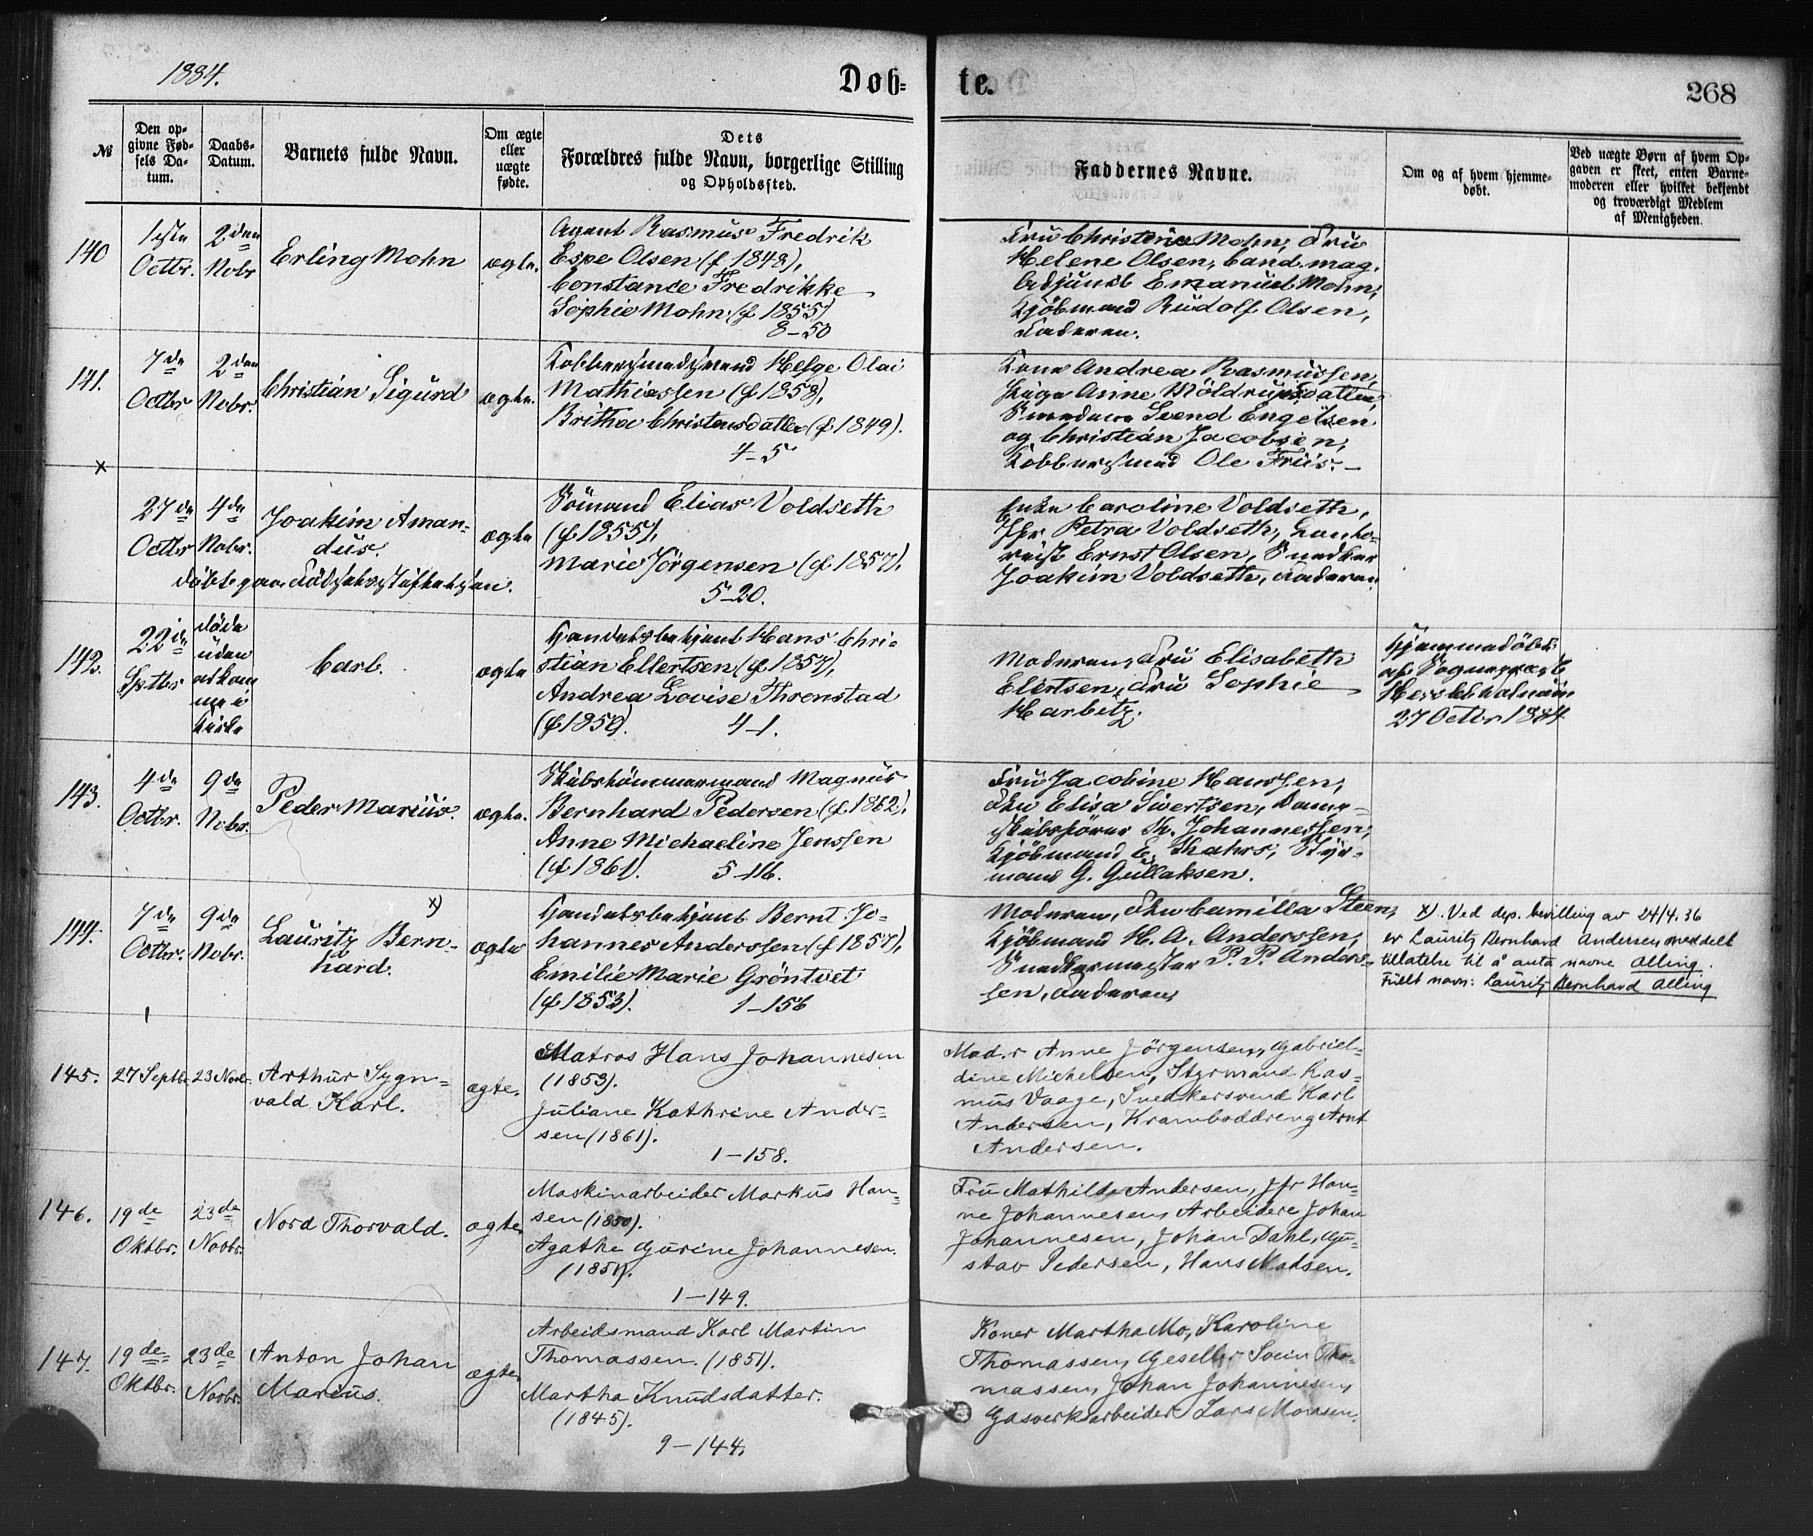 1884.
Døb-
te.
268
№
Den op-
givne Fød-
sels Da-
tum.
Daabs-
Datum.
Barnets fulde Navn.
Om ægte
eller
uægte
fødte.
Dets
Forældres fulde Navn, borgerlige Stilling
og Opholdssted.
Faddernes Navne.
Om og af hvem hjemme-
døbt.
Ved uægte Børn af hvem Op-
gaven er skeet, enten Barne-
moderen eller hvilket bekjendt
og troværdigt Medlem
af Menigheden.
140
1ste
Octbr.
2den
Nobr
Erling Mohn
ægte.
Agent Rasmus Fredrik
Espe Olsen (f 1848),
Constance Fredrikke
Sophie Mohn (f 1855)
8-50
Fru Christence Mohn, Fru
Helene Olsen, Cand. mag.
Adjunct Emanuel Mohn,
Kjöbmand Rudolf Olsen,
Faderen.
141.
7de
Octbr
2den
Nobr.
Christian Sigurd
ægte.
Kobbersmedsvend Helge Olai
Mathiassen (f 1858),
Britha Christensdatter (f 1849).
4-5
Kone Andrea Rasmussen,
Pige Anine Möldrupsdatter,
Smedene Svend Engelsen
og Christian Jacobsen,
Kobbersmed Ole Friis.
x
27de
Octbr
4de
Nobr.
Joakim Aman-
dus.
döbt paa Födselsstiftelsen.
ægte
Sömand Elias Voldseth
(f 1855),
Marie Jörgensen (f 1857).
5-20.
Enke Caroline Voldseth,
Jfr Petra Voldseth, Konto-
rist Ernst Olsen, Snedker
Joakim Voldseth, Faderen.
142.
22de
Sptbr
döde
uden
at kom
me i
Kirke
Carl.
ægte
Handelsbetjent Hans Chri-
stian Ellertsen (f 1857),
Andrea Lovise Threnstad
(f 1859).
4-1.
Moderen, Fru Elisabeth
Elertsen, Fru Sophie
Harbitz.
Hjemmedöbt
af Sognepræst
27 Octbr 1884
143.
4de
Octbr.
9de
Nobr.
Peder Marius.
ægte.
Skibstömmermand Magnus
Bernhard Pedersen (f 1862),
Anne Michaeline Jenssen
(f 1861).
5-116.
Fru Jacobine Hanssen,
Frk Elisa Sivertsen, Damp-
skibsförer Th. Johannessen,
Kjöbmand E. Thahrs, Styr-
mand G. Gullaksen.
144.
7de
Octbr.
9de
Nobr.
x)
Lauritz Bern-
hard.
ægte
Handelsbetjent Bernt Jo-
hannes Anderssen (f 1857),
Emilie Marie Gröntvet
(f 1853).
1-156
Moderen, Frk Camilla Steen,
Kjöbmand H. A. Anderssen,
Snedkermester P. P. Anders-
sen, Faderen,
x). Ved dep. bevilling av 24/4.36
er Lauritz Bernhard Andersen meddelt
tillatelse til å anta navne Alling.
Fullt navn: Lauritz Bernhard Alling
145.
27 Septbr
23 Novbr.
Arthur Sygn-
vald Karl.
ægte.
Matros Hans Johannesen
(1853).
Juliane Kathrine Ander-
sen (1861).
1-158.
Mad.r Anne Jörgensen, Gabriel-
dine Michelsen, Styrmand Ras-
mus Vaage, Snedkersvend Karl
Andersen, Kramboddreng Arnt
Andersen.
146.
19de
Oktbr.
23de
Novbr.
Nord Thorvald.
ægte
Maskinarbeider Markus Han-
sen (1850).
Agathe Gurine Johannesen.
(1851).
1-149.
Fru Mathilde Andersen, Jfr Han-
ne Johannesen, Arbeidere Johan
Johannesen, Johan Dahl, Gu-
stav Pedersen, Hans Madsen.
147.
19de
Oktbr.
23de
Novbr.
Anton Johan
Marius.
ægte
Arbeidsmand Karl Martin
Thomassen. (1851).
Martha Knudsdatter.
(1845).
9-144.
Koner Martha Mo, Karoline
Thomassen, Geseller Svein Tho-
massen, Johan Johannesen,
Gasverksarbeider Lars Monsen.